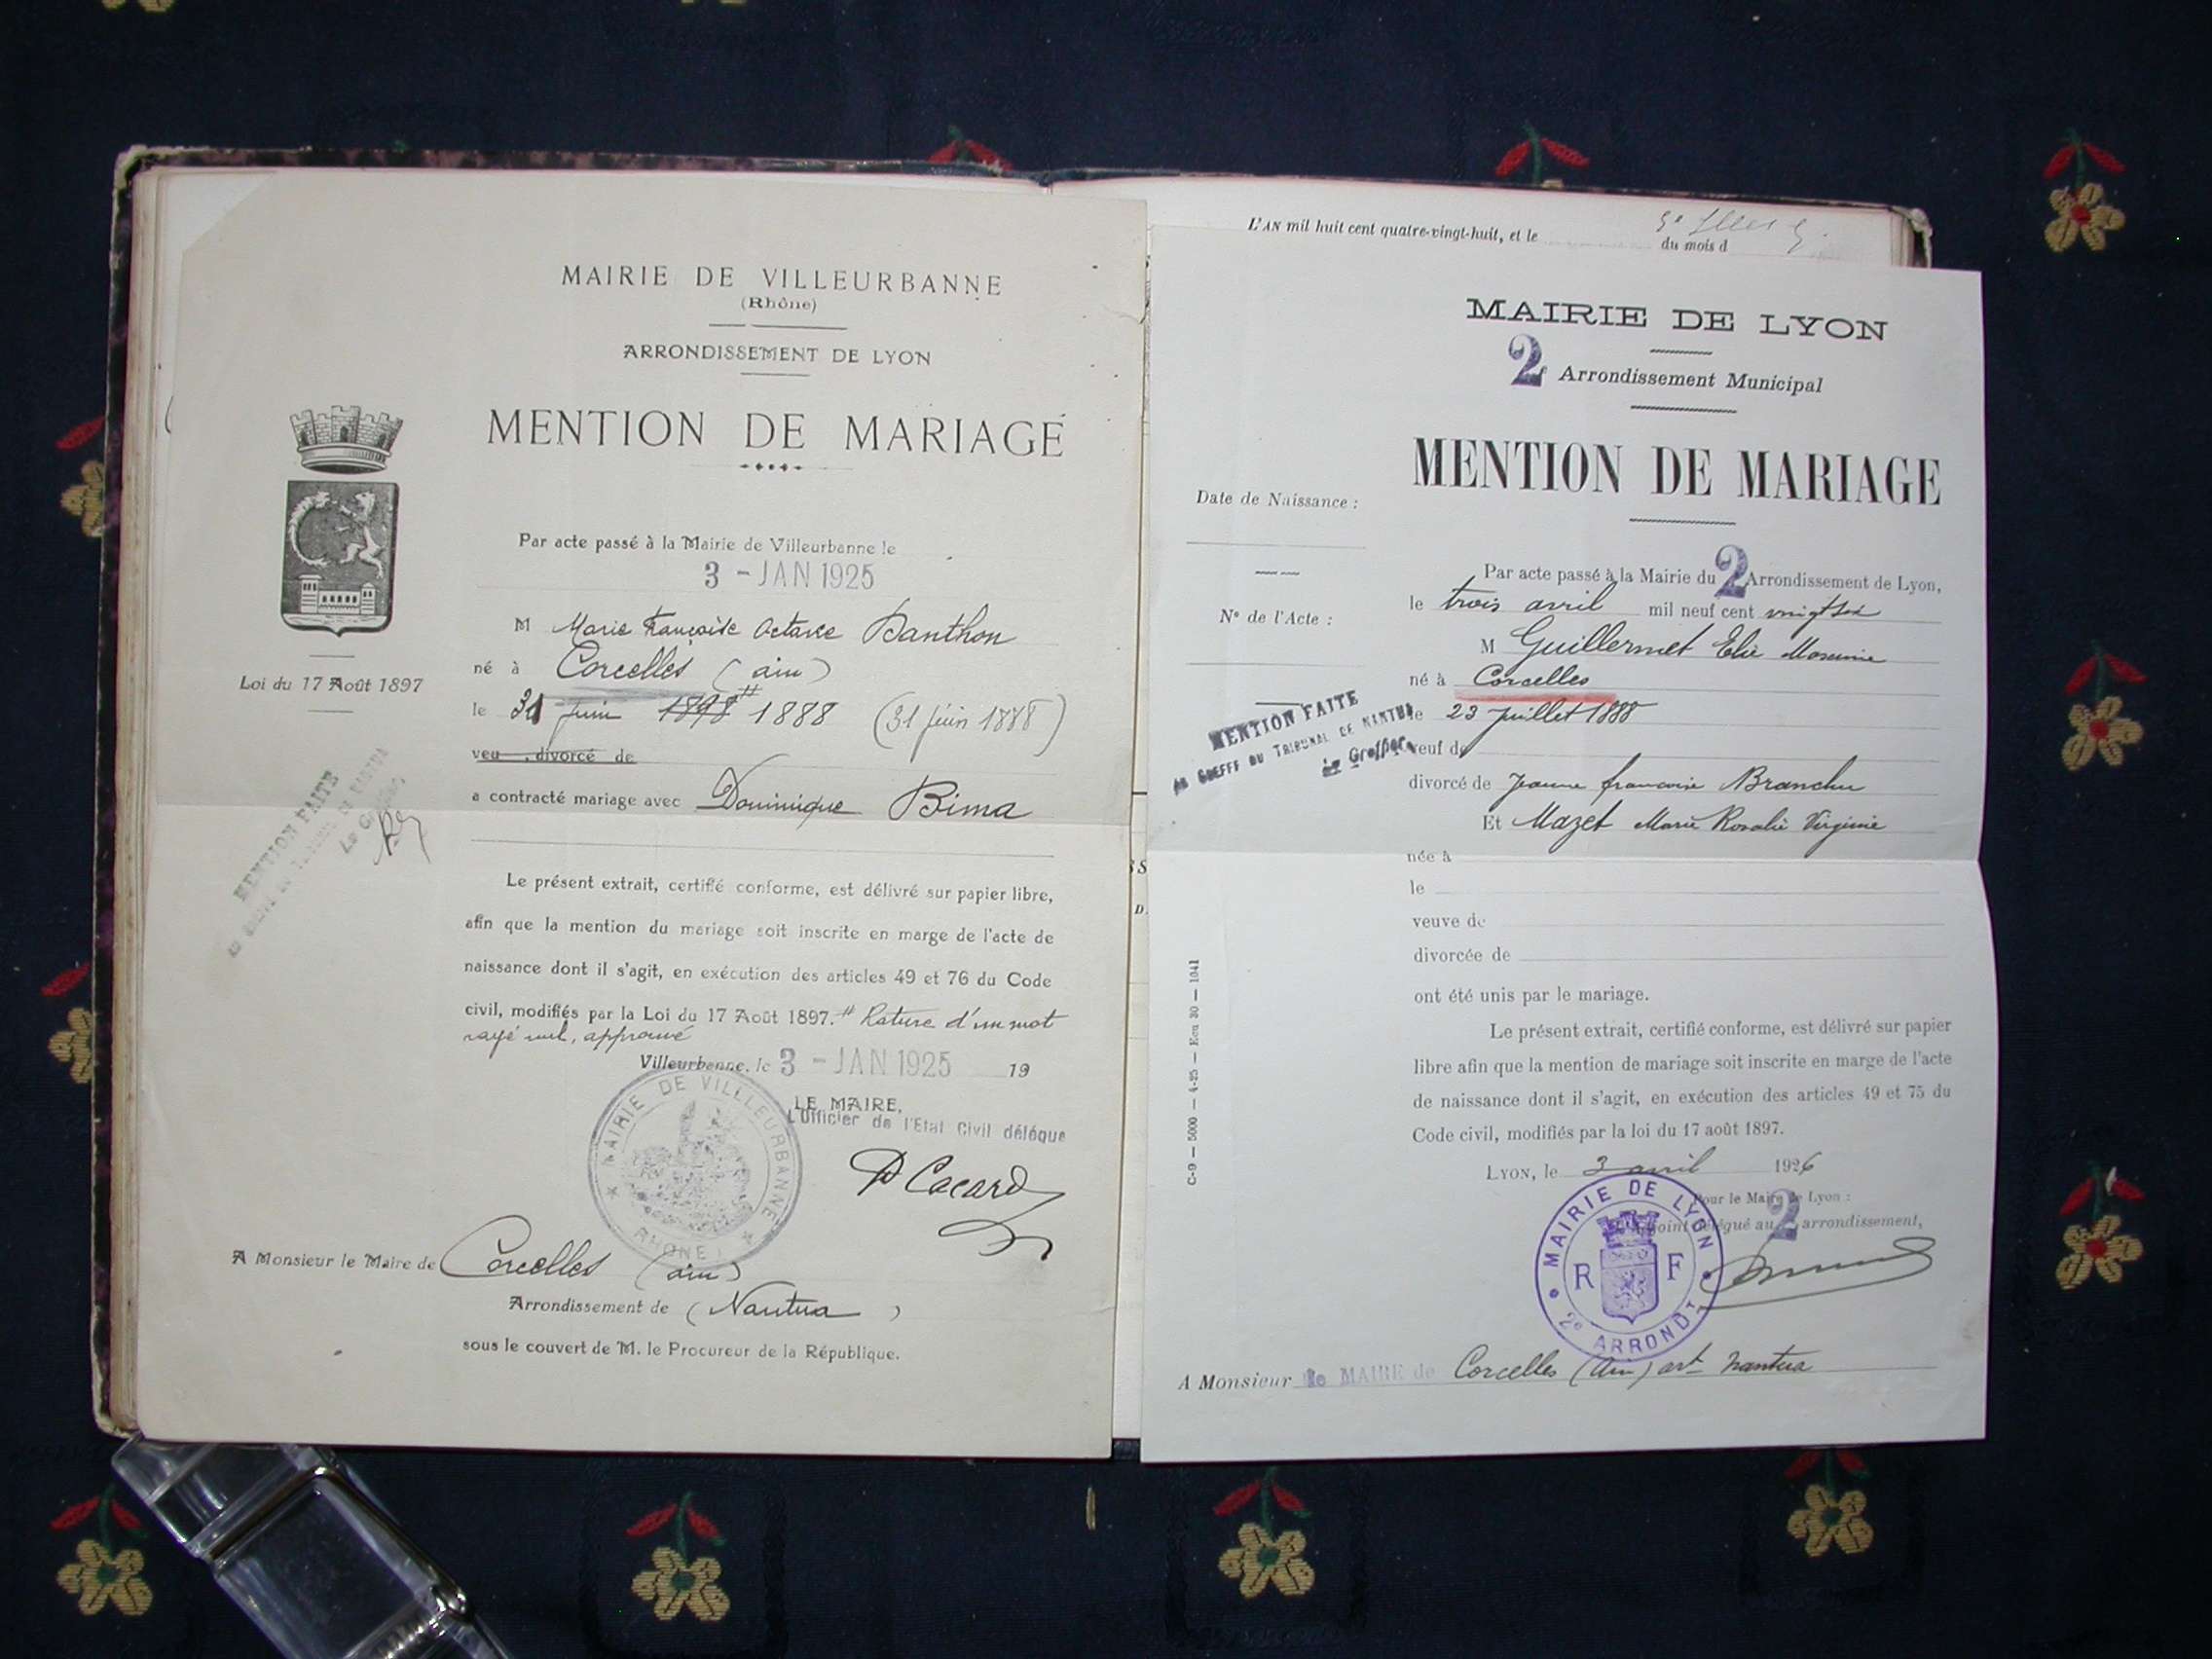 MAIRIE DE VILLEURBANNE
(Rhône)
ARRONDISSEMENT DE LYON
MENTION DE MARIAGE
Loi du 17 Août 1897
Par acte passé à la Mairie de Villeurbanne le
3 - JAN 1925
M Marie Françoise Octavie Banthon
né à Corcelles (ain)
le 31 juin 1898 # 1888 (31 juin 1888)
veu , divorcé de
a contracté mariage avec Dominique Bima
MENTION FAITE
Le présent extrait, certifié conforme, est délivré sur papier libre,
afin que la mention du mariage soit inscrite en marge de l'acte de
naissance dont il s'agit, en exécution des articles 49 et 76 du Code
civil, modifiés par la Loi du 17 Août 1897. # Rature d'un mot
rayé nul, approuvé
Villeurbanne, le 3 - JAN 1925 19
LE MAIRE,
L'Officier de l'Etat Civil délégué
MAIRIE DE VILLLEURBANNE
(RHONE)
A Monsieur le Maire de Corcelles (ain)
Arrondissement de (Nantua)
sous le couvert de M. le Procureur de la République.
L'AN mil huit cent quatre-vingt-huit, et le
du mois d
MAIRIE DE LYON
2e Arrondissement Municipal
MENTION DE MARIAGE
Date de Naissance :
N° de l'Acte :
Par acte passé à la Mairie du 2 Arrondissement de Lyon,
le trois avril mil neuf cent vingt six
M Guillermet Elie
né à Corcelles
le 23 juillet 1888
veuf de
divorcé de Jeanne francoise Branchu
Et Mazet Marie Rosalie Virginie
née à
le
veuve de
divorcée de
ont été unis par le mariage.
MENTION FAITE
AU GREFFE DU TRIBUNAL DE NANTUA
Le Greffier
Le présent extrait, certifié conforme, est délivré sur papier
libre afin que la mention de mariage soit inscrite en marge de l'acte
de naissance dont il s'agit, en exécution des articles 49 et 75 du
Code civil, modifiés par la loi du 17 août 1897.
LYON, le 3 avril 1926
Pour le Maire de Lyon :
2 arrondissement,
MAIRIE DE LYON
R F
2e ARRONDT
A Monsieur le MAIRE de Corcelles (Ain) art Nantua
C-9 — 5000 — 4-25 — Ecu 30 — 1041